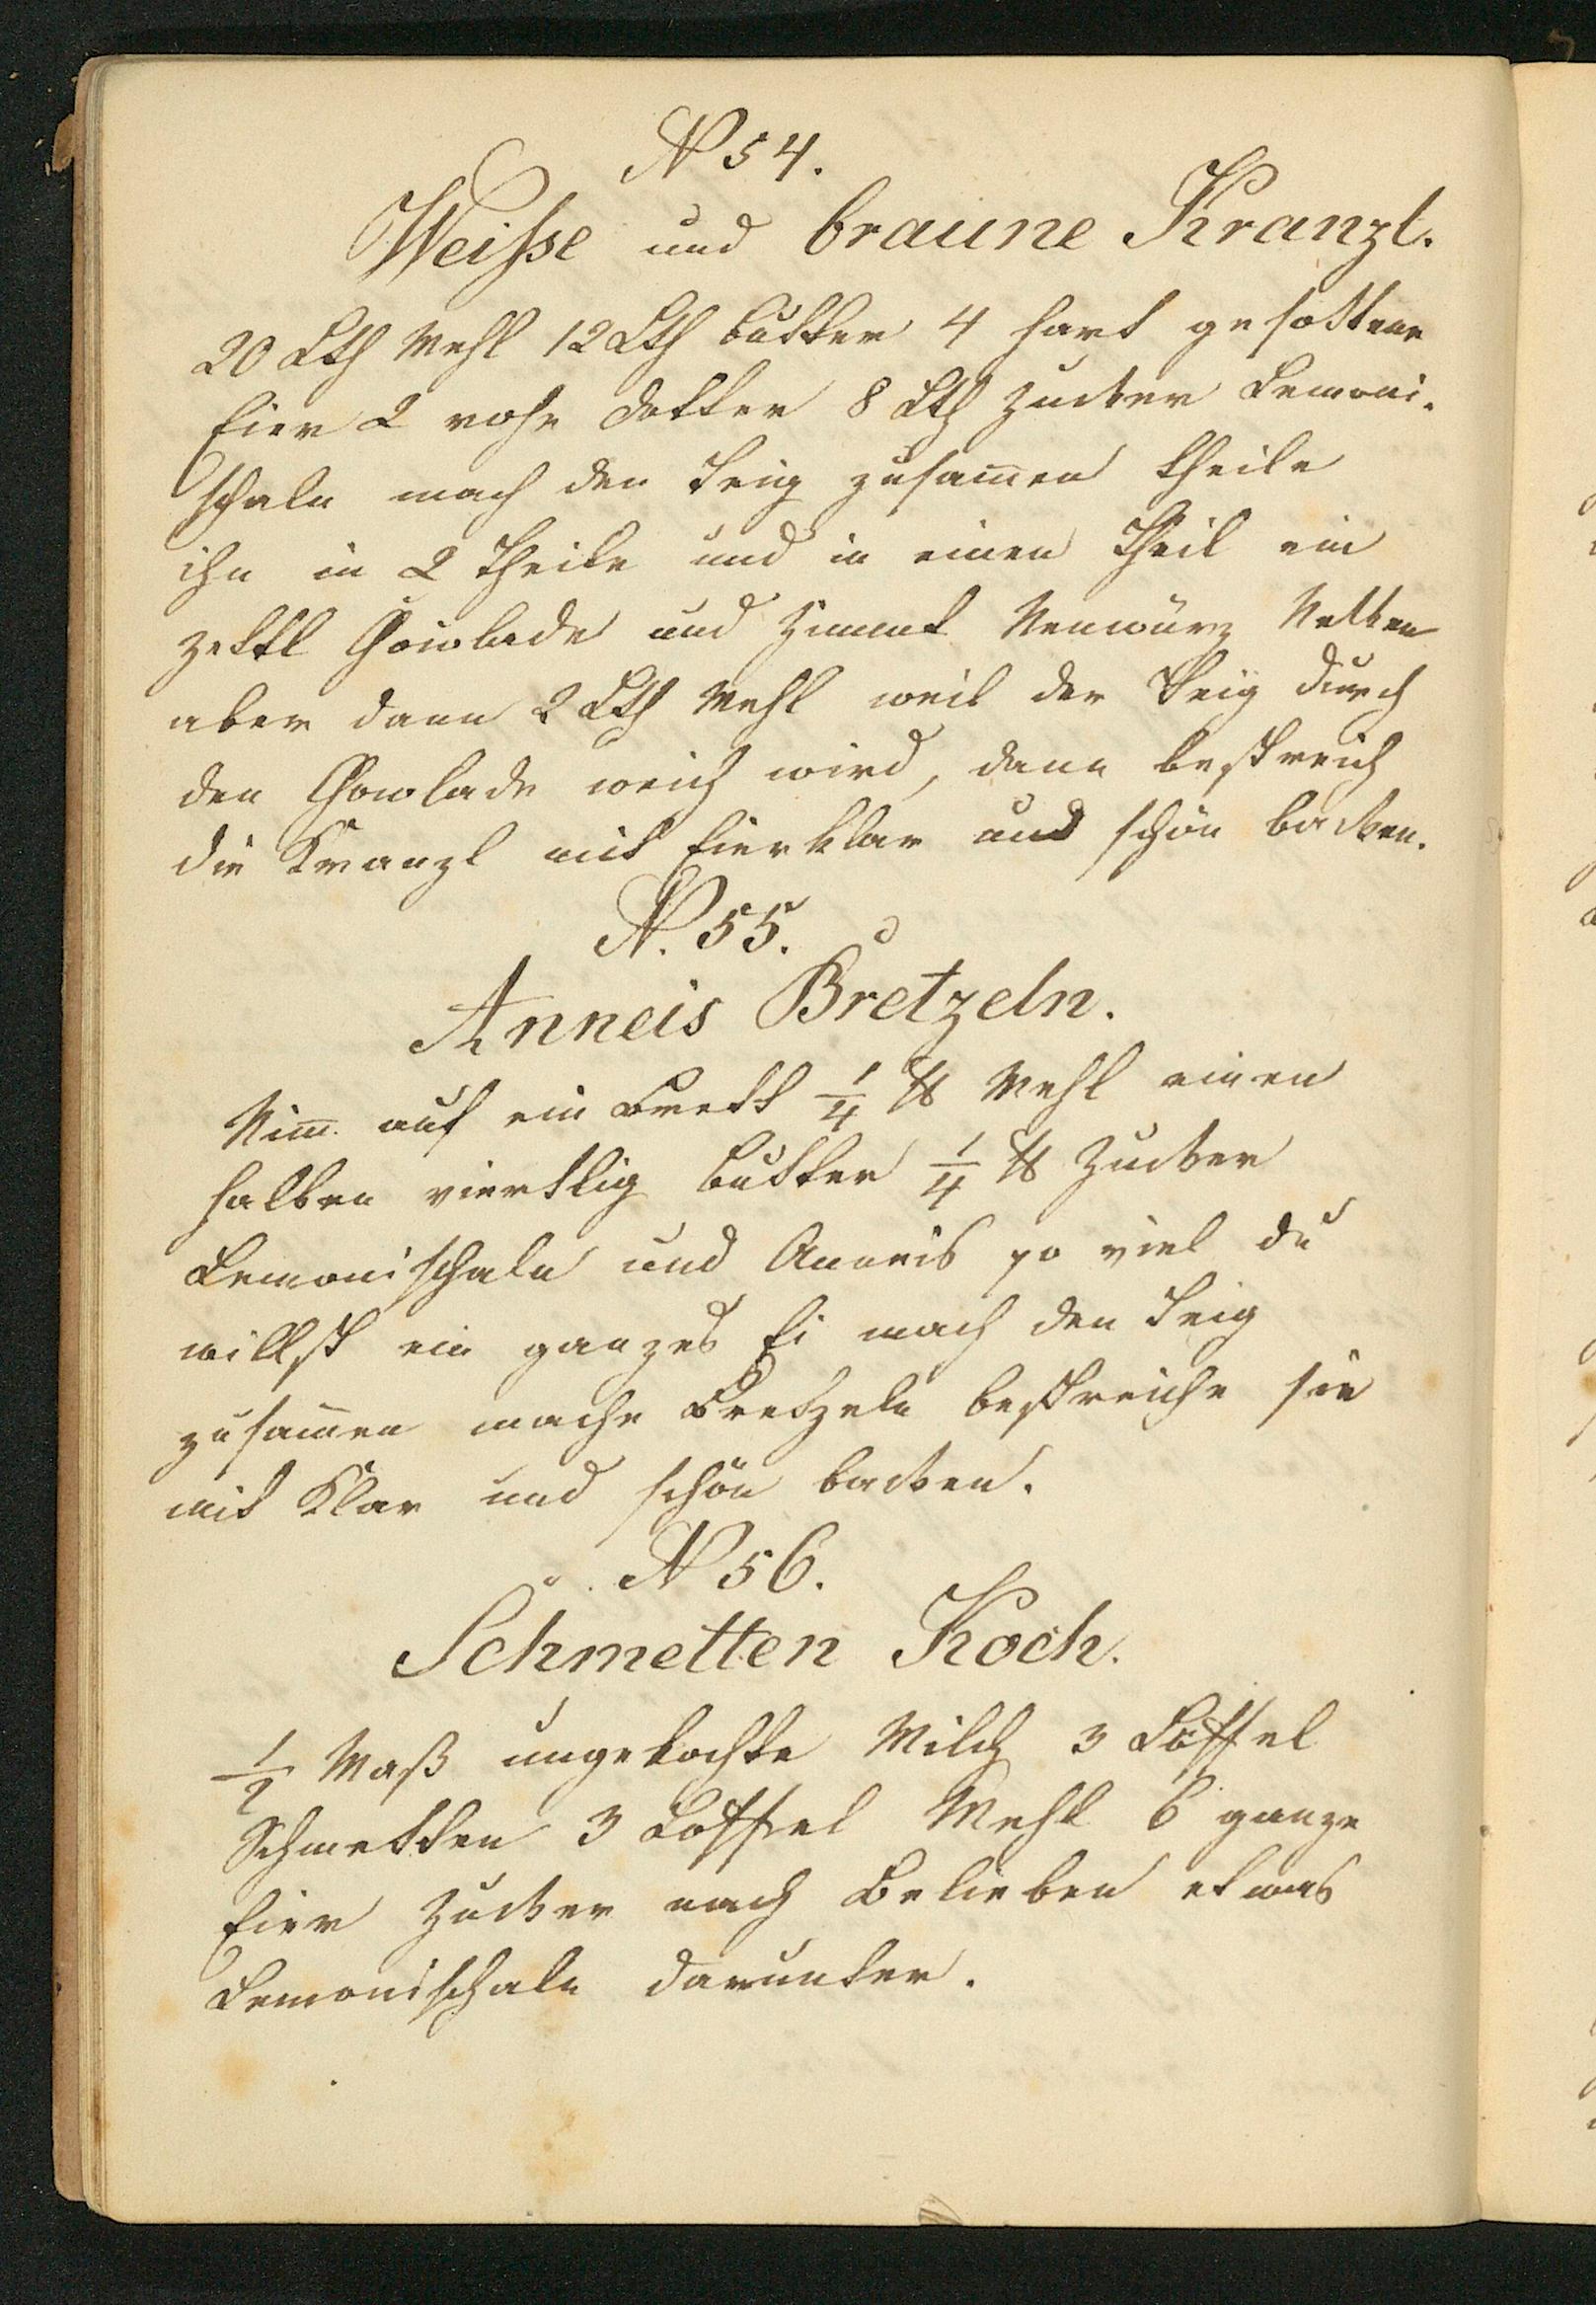 N 54.
Weiße und braune Kranzl.
20 Lth Mehl 12 Lth butter 4 hart gesottene
Eier 2 rohe Dotter 8 Lth Zucker Lemoni-
schaln mach den Teig zusam̄en theile
ihn in 2 Theile und in einen Theil ein
Zeltl Chowlade und Zimmt Neuwürz Nelken
aber dann 2 Lth Mehl weil der Teig durch
den Chowlade weich wird, dann bestreich
die Kranzl mit Eierklar und schön backen.
N. 55.
Anneis Bretzeln.
Nim̄ auf ein Brett 1/4 ℔ Mehl einen
halben viertlig butter 1/4 ℔ Zucker
Lemonischaln und Anneis so viel du
willst ein ganzes Ei mach den Teig
zusam̄en mache Bretzeln bestreiche sie
mit Klar und schön backen.
N 56.
Schmetten Koch.
1/2 Maß ungekochte Milch 3 Löffel
Schmetten 3 Löffel Mehl 6 ganze
Eier Zucker nach Belieben etwas
Lemonischaln darunter.